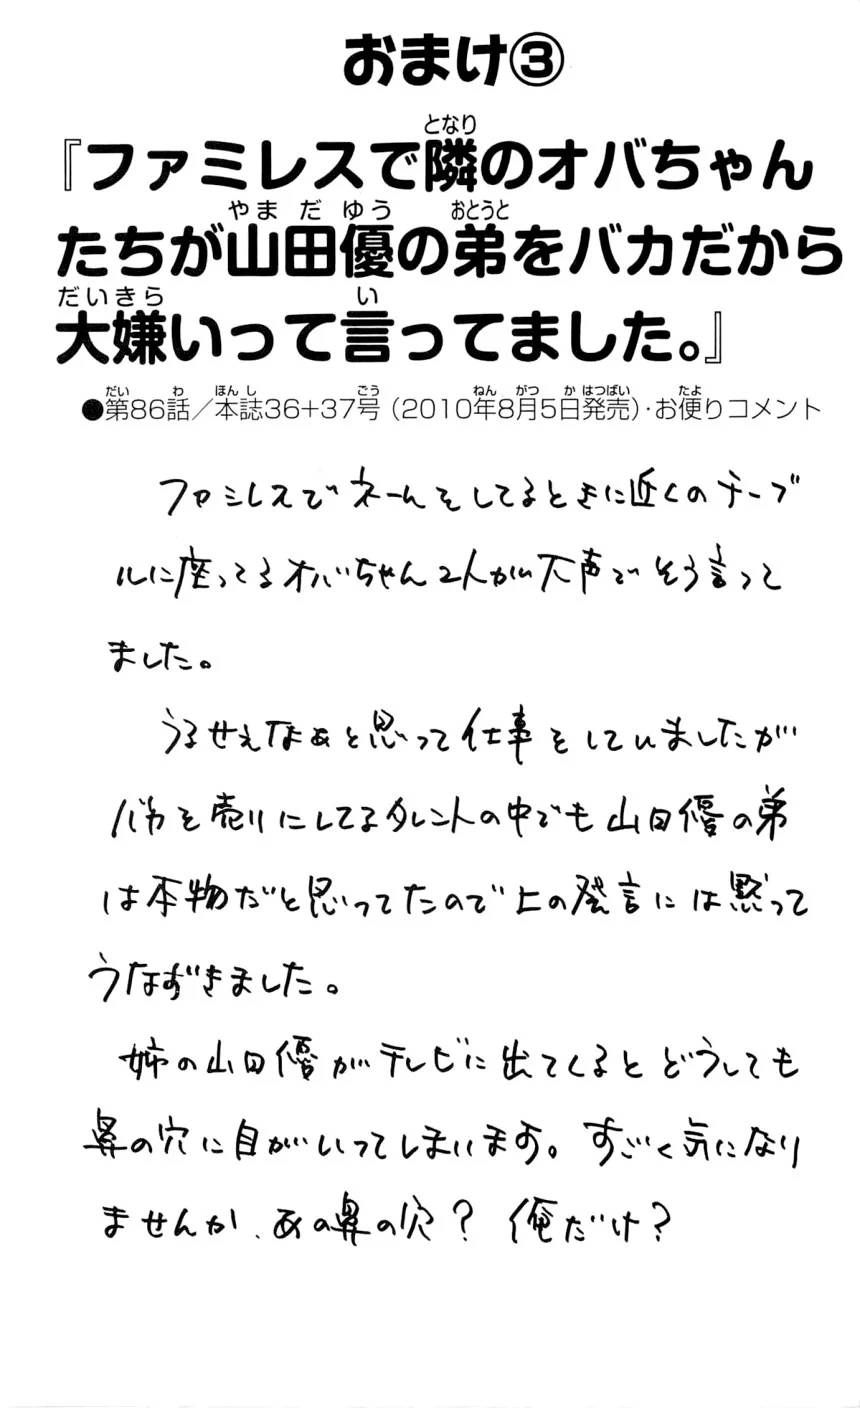 おまけ③
『ファミレスで隣のオバちゃん
たちが山田優の弟をバカだから
大嫌いって言ってました。』
●第86話／本誌36+37号（2010年8月5日発売）・お便りコメント
ファミレスでネームをしてるときに近くのテーブ
ルに座ってるオバちゃん2人が大声でそう言って
ました。
うるせえなぁと思って仕事をしていましたが
バカを売りにしてるタレントの中でも山田優の弟
は本物だと思ってたので上の発言には黙って
うなずきました。
姉の山田優がテレビに出てくるとどうしても
鼻の穴に目がいってしまいます。すごく気になり
ませんか、あの鼻の穴？俺だけ？